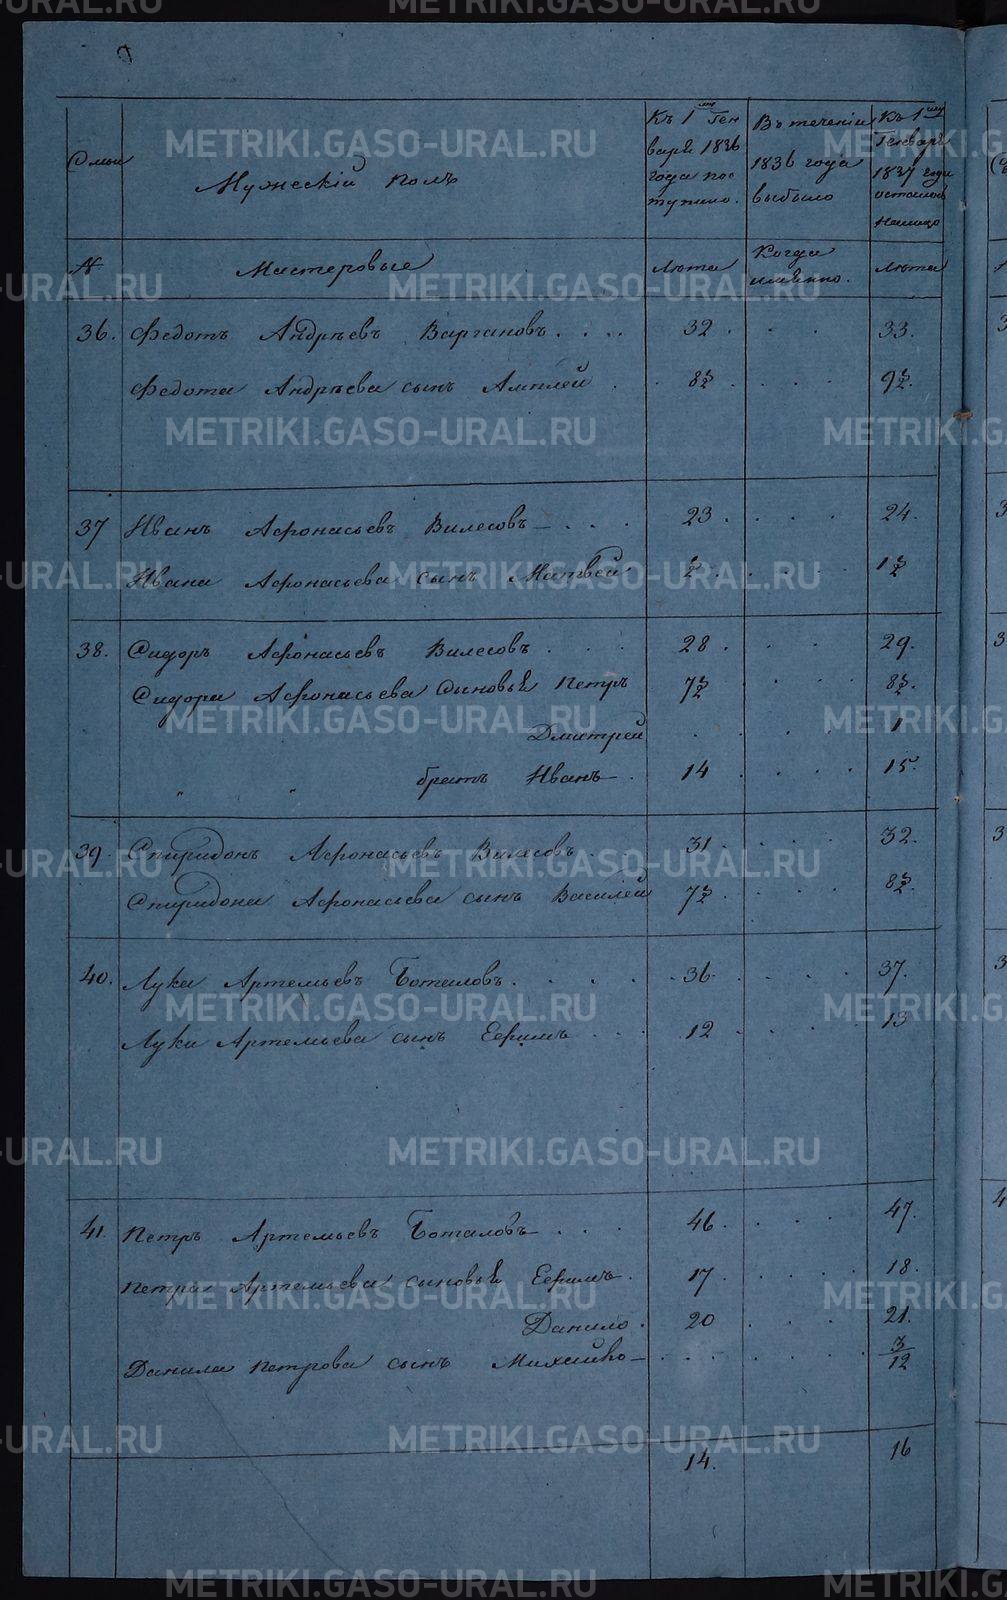 Мужескій полъ
Къ 1 Ген
варя 1836
года пос
тупило.
Въ теченіи
1836 года
выбыло
Къ 1
Генваря
1837 года
осталось
налицо
№ Мастеровые Лѣта Когда Лѣта
именно.
36. Федотъ Андрѣевъ Вargановъ 32 33.
Федота Андрѣева сынъ 8½ 9½.
37 Иванъ Афонасьевъ Вилесовъ 23 24.
Ивана Афонасьева сынъ Матвей ½ 1½
38. Сидоръ Афонасьевъ Вилесовъ 28 29.
Сидора Афонасьева сыновья Петръ 7½ 8½.
Дмитрей 1
„ „ братъ Иванъ 14 15.
39. Спиридонъ Афонасьевъ Вилесовъ 31 32.
Спиридона Афонасьева сынъ Василей 7½ 8½
40. Лука Артемьевъ Боталовъ 36 37.
Луки Артемьева сынъ Ефимъ 12 13
41. Петръ Артемьевъ Боталовъ 46 47.
Петра Артемьева сыновья Ефимъ 17 18.
Данило 20 21.
Данила Петрова сынъ Михайло 3/12
14. 16
METRIKI.GASO-URAL.RU